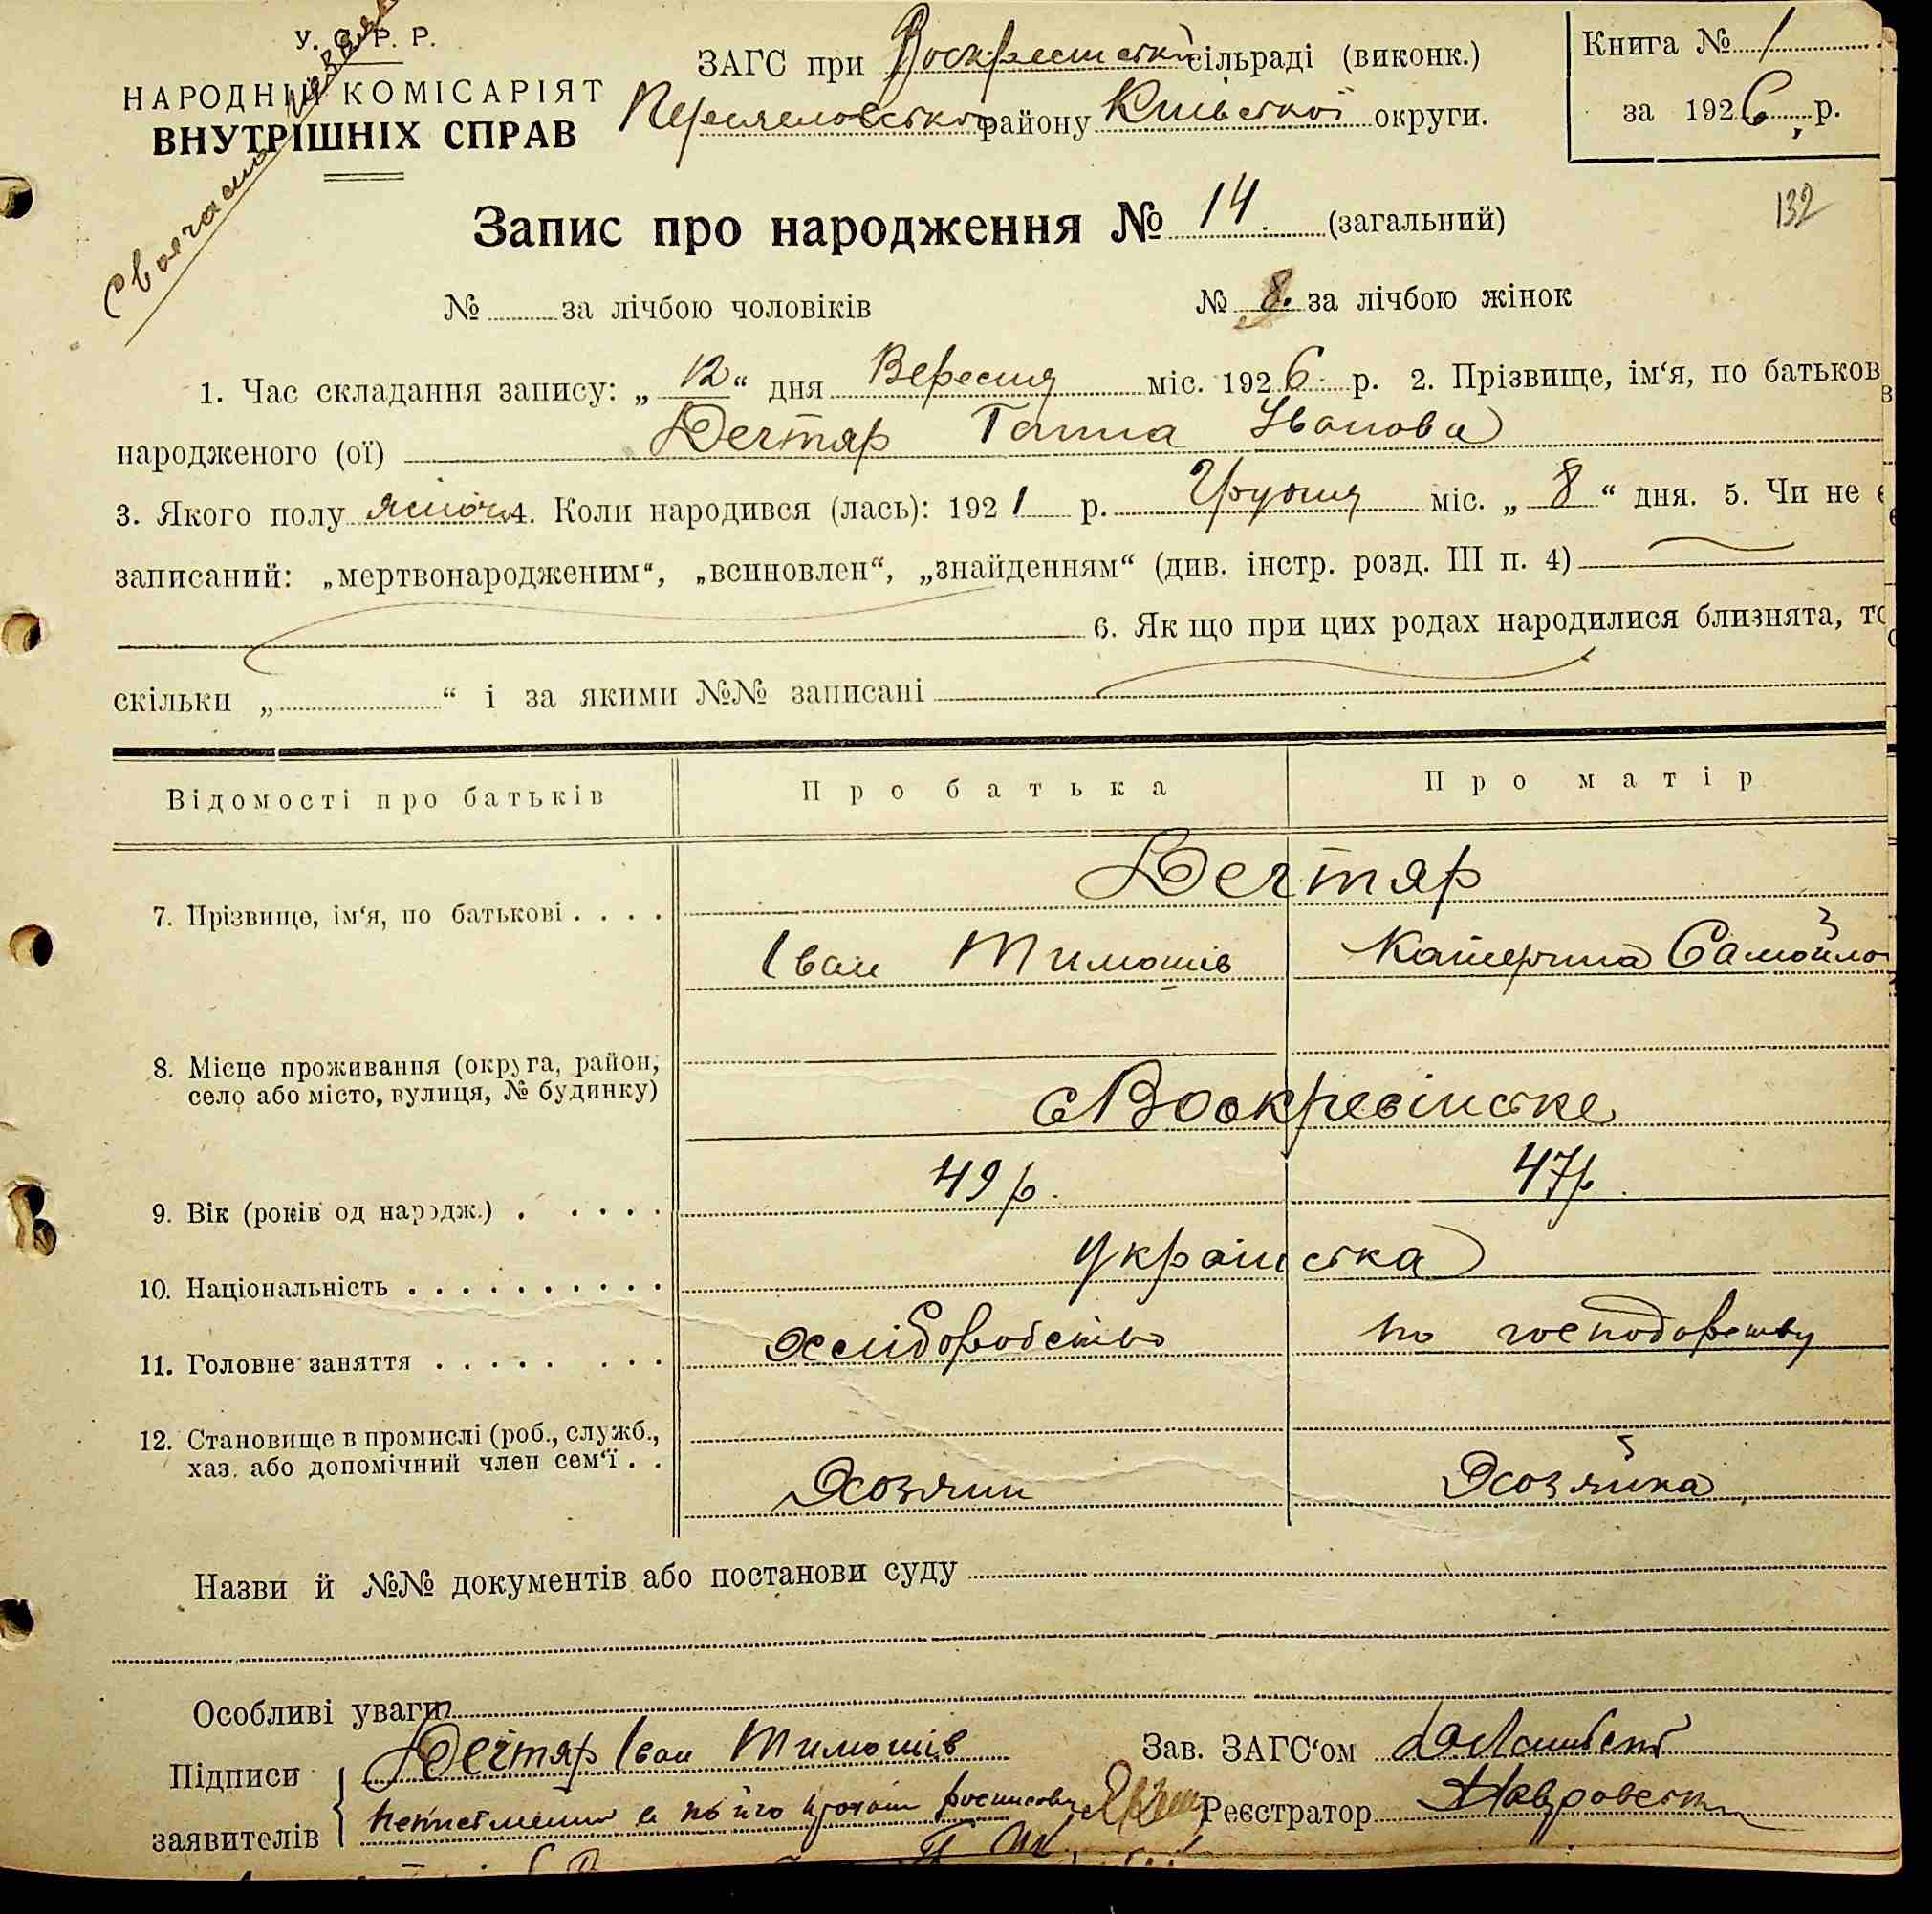 У. С. Р. Р.
НАРОДНІЙ КОМІСАРІЯТ
ВНУТРІШНІХ СПРАВ
Своячасно
ЗАГС при Воскресенській сільраді (виконк.)
району Київської округи.
Книга № 1
за 1926 р.
132
Запис про народження № 14. (загальний)
№ за лічбою чоловіків
№ 8. за лічбою жінок
1. Час складання запису: „12“ дня Вересня міс. 1926 р. 2. Прізвище, ім‘я, по батьков
народженого (ої) Дегтяр Ганна Іванова
3. Якого полу жіноч. 4. Коли народився (лась): 1921 р. Грудня міс. „8“ дня. 5. Чи не є
записаний: „мертвонародженим“, „всиновлен“, „знайденням“ (див. інстр. розд. III п. 4)
6. Як що при цих родах народилися близнята, то
скільки „ “ і за якими №№ записані
Відомості про батьків Про батька Про матір
Дегтяр
7. Прізвище, ім‘я, по батькові . . . .
Іван Тимошів Катерина Самойло
8. Місце проживання (округа, район,
село або місто, вулиця, № будинку)
с Воскресінське
49 р. 47 р.
9. Вік (років од народж.) . . . . .
українська
10. Національність . . . . . . . . . .
хліборобство по господарству
11. Головне заняття . . . . . . . .
12. Становище в промислі (роб., служб.,
хаз. або допомічний член сем‘ї . .
Хозяин Хозяйка
Назви й №№ документів або постанови суду
Особливі уваги
Підписи
заявителів
Дегтяр Іван Тимошів
Зав. ЗАГС‘ом
а по його
Реєстратор